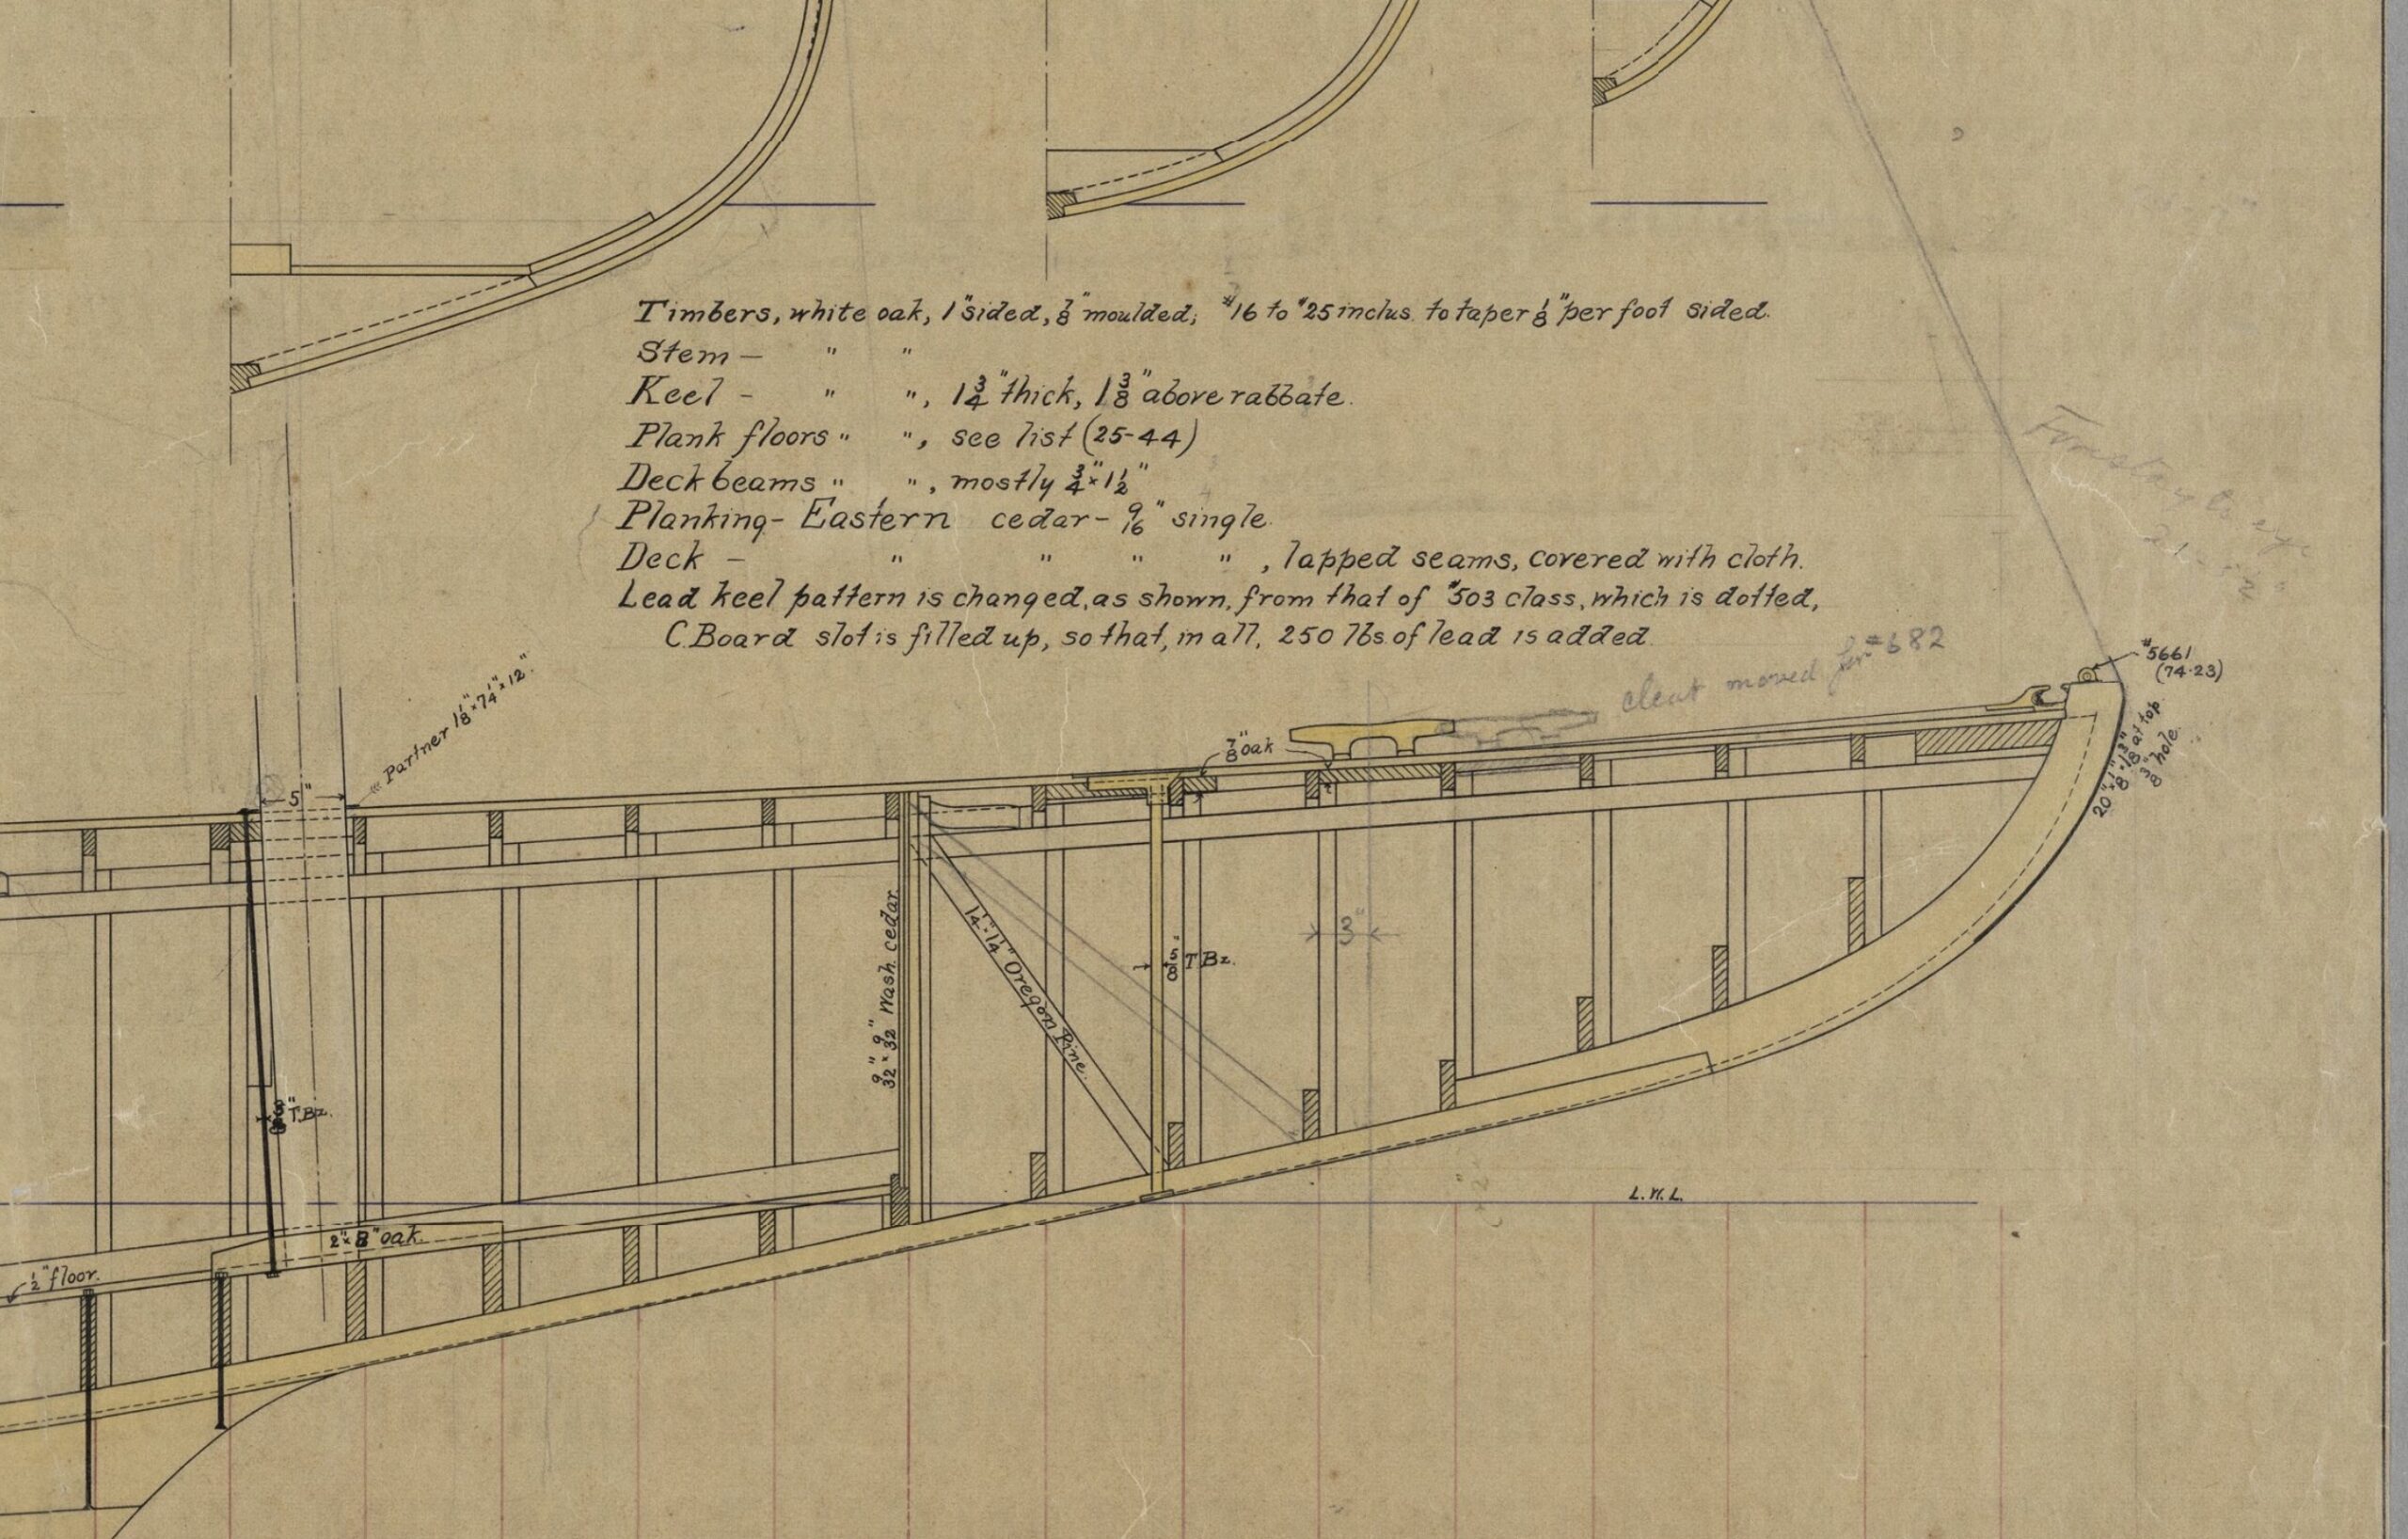 Timbers, white oak, 1" sided, 7/8" moulded; #16 to #25 inclus. to taper 1/8" per foot sided.
Stem — " "
Keel - " ", 1 3/4" thick, 1 3/8" above rabbate.
Plank floors " ", see list (25-44)
Deck beams " ", mostly 3/4" x 1 1/2"
Planking - Eastern cedar - 9/16" single.
Deck - " " " " , lapped seams, covered with cloth.
Lead keel pattern is changed, as shown, from that of #503 class, which is dotted,
C.Board slot is filled up, so that, in all, 250 lbs of lead is added.
cleat moved for #682
#5661
(74-23)
Partner 1 1/8" x 7 1/4" x 12"
5"
7/8" oak
at top
3/8" hole.
9/32" x 9/32" Wash. cedar.
1 1/4" x 1 1/4" Oregon Pine.
T Bz.
3"
T.Bz.
L.W.L.
2" x 8" oak.
1/2" floor.